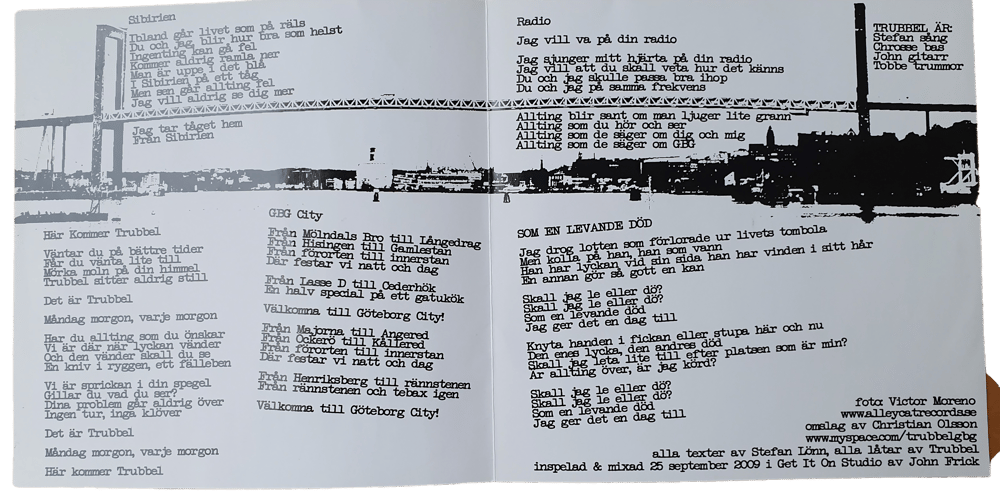 Sibirien
Ibland går livet som på räls
Du och jag, blir hur bra som helst
Ingenting kan gå fel
Kommer aldrig ramla ner
Man är uppe i det blå
I Sibirien på ett tåg
Men sen går allting fel
Jag vill aldrig se dig mer
Jag tar tåget hem
Från Sibirien
Radio
Jag vill va på din radio
Jag sjunger mitt hjärta på din radio
Jag vill att du skall veta hur det känns
Du och jag skulle passa bra ihop
Du och jag på samma frekvens
Allting blir sant om man ljuger lite grann
Allting som du hör och ser
Allting som de säger om dig och mig
Allting som de säger om GBG
TRUBBEL ÄR:
Stefan sång
Chrosse bas
John gitarr
Tobbe trummor
Här Kommer Trubbel
Väntar du på bättre tider
Får du vänta lite till
Mörka moln på din himmel
Trubbel sitter aldrig still
Det är Trubbel
Måndag morgon, varje morgon
Har du allting som du önskar
Vi är där när lyckan vänder
Och den vänder skall du se
En kniv i ryggen, ett fälleben
Vi är sprickan i din spegel
Gillar du vad du ser?
Dina problem går aldrig över
Ingen tur, inga klöver
Det är Trubbel
Måndag morgon, varje morgon
Här kommer Trubbel
GBG City
Från Mölndals Bro till Långedrag
Från Hisingen till Gamlestan
Från förorten till innerstan
Där festar vi natt och dag
Från Lasse D till Cederhök
En halv special på ett gatukök
Välkomna till Göteborg City!
Från Majorna till Angered
Från Öckerö till Kållered
Från förorten till innerstan
Där festar vi natt och dag
Från Henriksberg till rännstenen
Från rännstenen och tebax igen
Välkomna till Göteborg City!
SOM EN LEVANDE DÖD
Jag drog lotten som förlorade ur livets tombola
Men kolla på han, han som vann
Han har lyckan vid sin sida han har vinden i sitt hår
En annan gör så gott en kan
Skall jag le eller dö?
Skall jag le eller dö?
Som en levande död
Jag ger det en dag till
Knyta handen i fickan eller stupa här och nu
Den enes lycka, den andres död
Skall jag leta lite till efter platsen som är min?
Är allting över, är jag körd?
Skall jag le eller dö?
Skall jag le eller dö?
Som en levande död
Jag ger det en dag till
foto: Victor Moreno
www.alleycatrecords.se
omslag av Christian Olsson
www.myspace.com/trubbelgbg
alla texter av Stefan Lönn, alla låtar av Trubbel
inspelad & mixad 25 september 2009 i Get It On Studio av John Frick